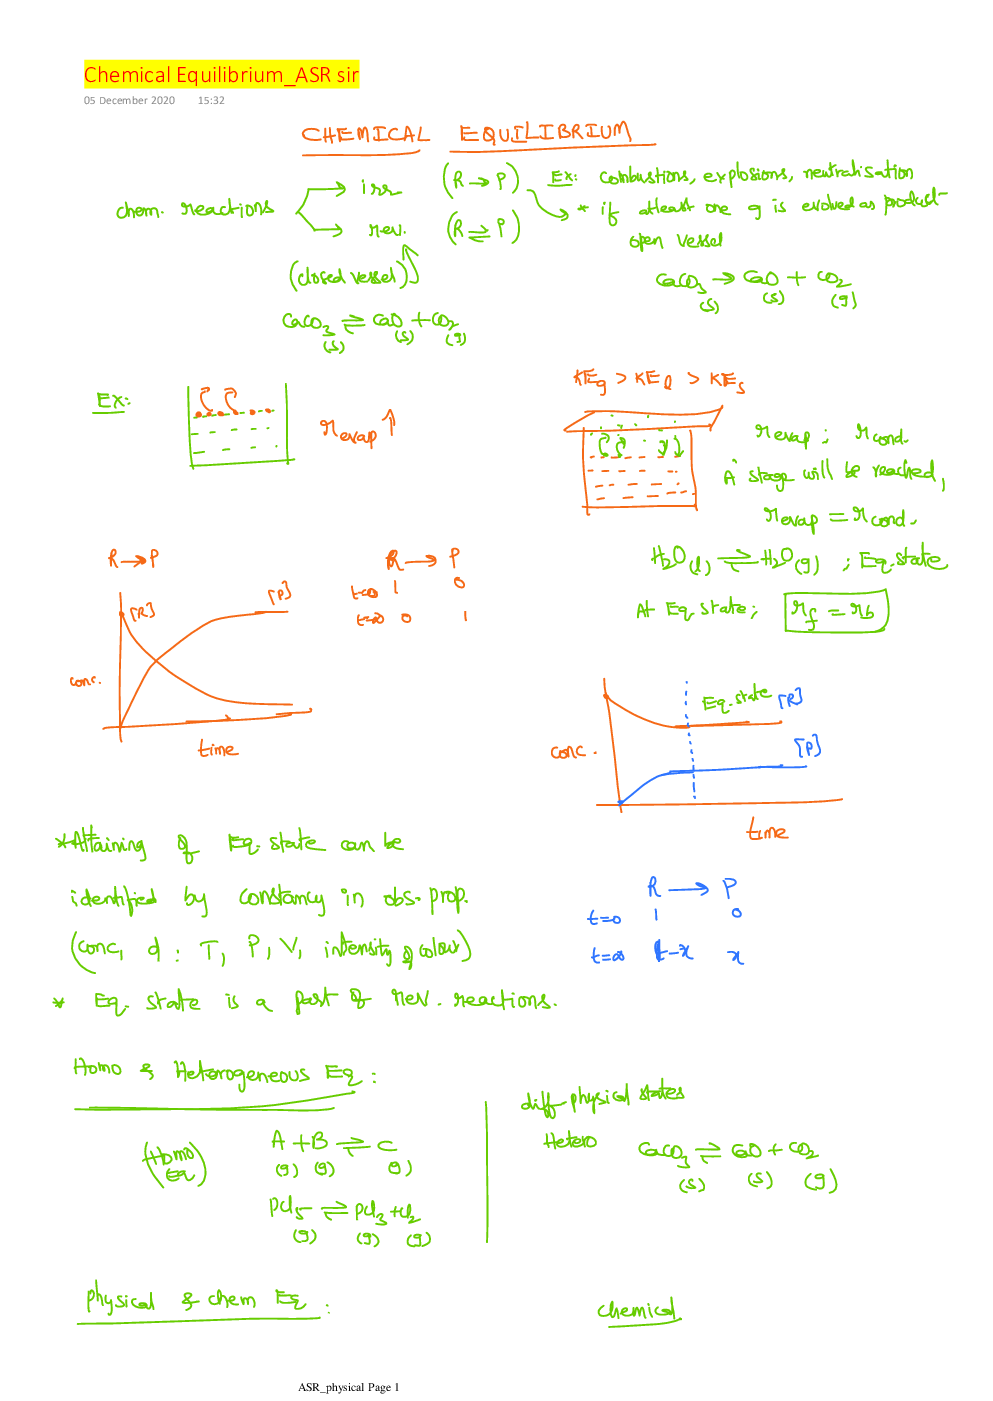 Chemical Equilibrium_ASR sir
05 December 2020 15:32
CHEMICAL EQUILIBRIUM
chem. reactions
irr (R → P)
rev. (R ⇌ P)
(closed vessel)
CaCO3 ⇌ CaO + CO2
(s) (s) (g)
Ex: combustions, explosions, neutralisation
* if atleast one g is evolved as product
open vessel
CaCO3 → CaO + CO2
(s) (s) (g)
Ex:
r evap ↑
KEg > KEl > KEs
r evap ; r cond.
A stage will be reached,
r evap = r cond.
H2O(l) ⇌ H2O(g) ; Eq. state
At Eq. state; rf = rb
R → P
[R]
[P]
conc.
time
R → P
t=0 1 0
t=∞ 0 1
Eq. state
[R]
[P]
conc.
time
* Attaining of Eq. state can be
identified by constancy in obs. prop.
(conc, d : T, P, V, intensity of colour)
* Eq. state is a part of rev. reactions.
R → P
t=0 1 0
t=∞ 1-x x
Homo & Heterogeneous Eq :
(Homo Eq)
A + B ⇌ C
(g) (g) (g)
PCl5 ⇌ PCl3 + Cl2
(g) (g) (g)
diff physical states
Hetero
CaCO3 ⇌ CaO + CO2
(s) (s) (g)
physical & chem Eq :
chemical
ASR_physical Page 1